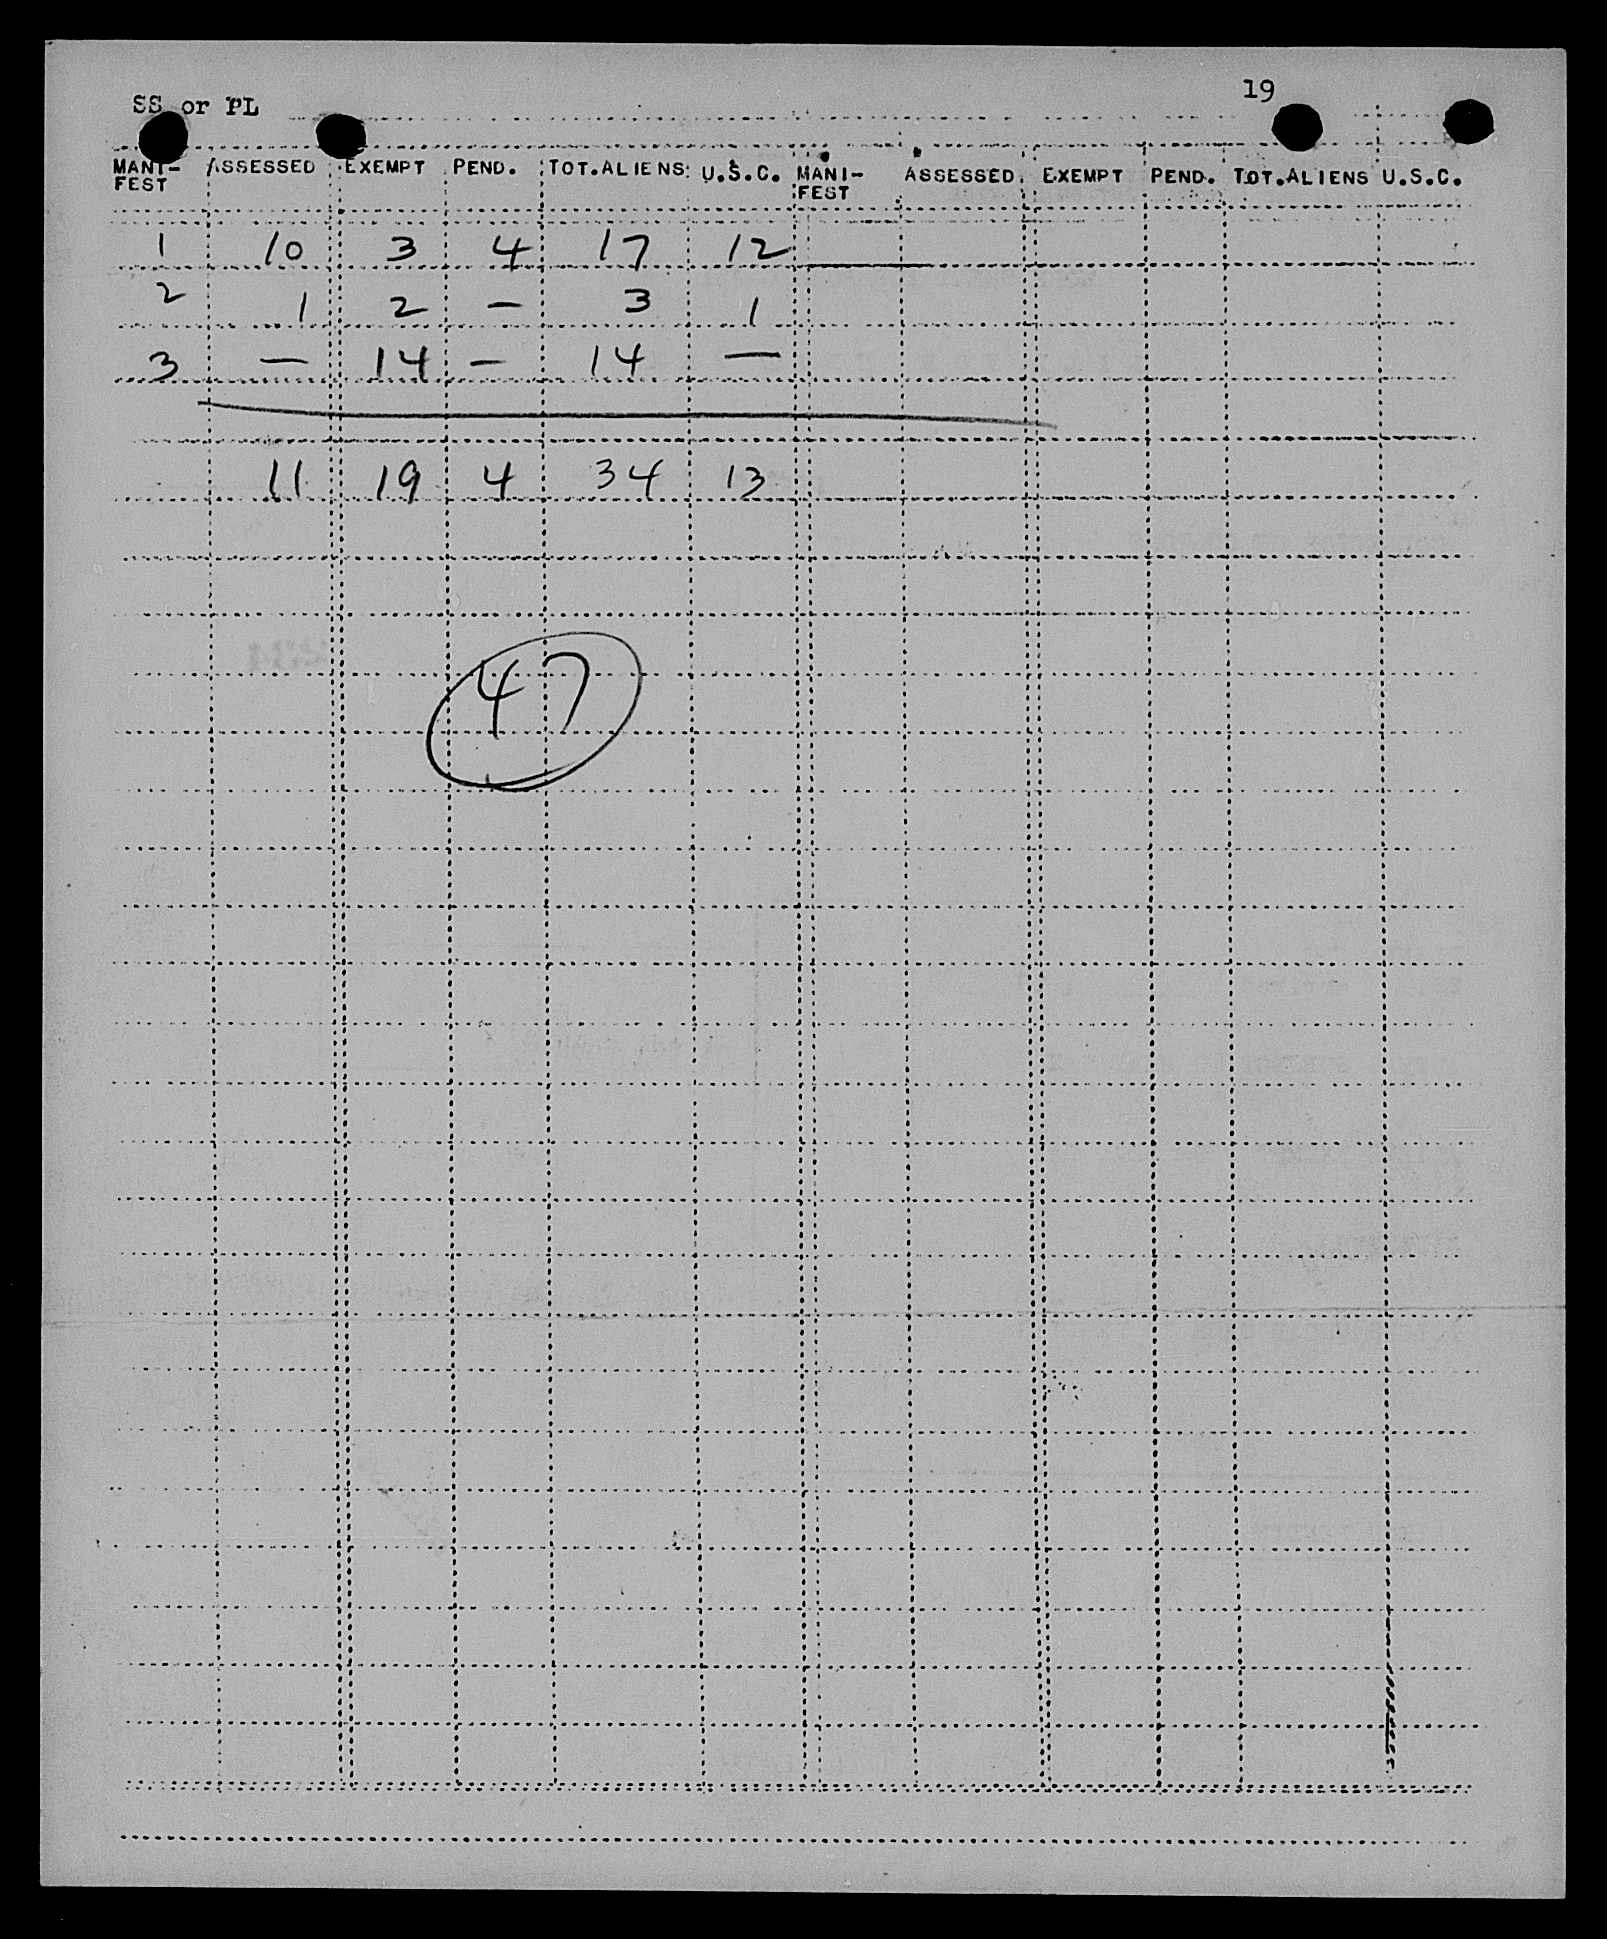 19
SS or PL
MANI-FEST ASSESSED EXEMPT PEND. TOT.ALIENS U.S.C. MANI-FEST ASSESSED EXEMPT PEND. TOT.ALIENS U.S.C.
1 10 3 4 17 12
2 1 2 — 3 1
3 — 14 — 14 —
11 19 4 34 13
47